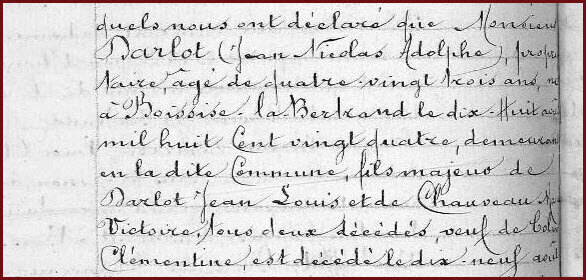 quels, nous ont déclaré que Monsieur
Darlot (Jean Nicolas Adolphe), proprié
taire, âgé de quatre-vingt trois ans, né
à Boissise-la-Bertrand le dix-Huit aoû
mil huit Cent vingt quatre, demeuran
en la dite Commune, fils majeur de
Darlot Jean Louis et de Chauveau
Victoire, tous deux décédés, veuf de
Clémentine, est décédé le dix-neuf août